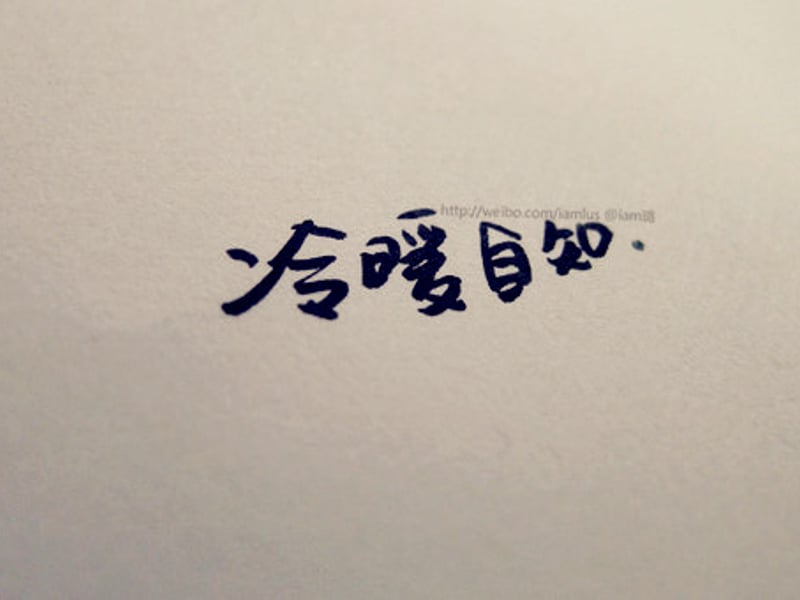 http://weibo.com/iamlus @iam璐
冷暖自知.